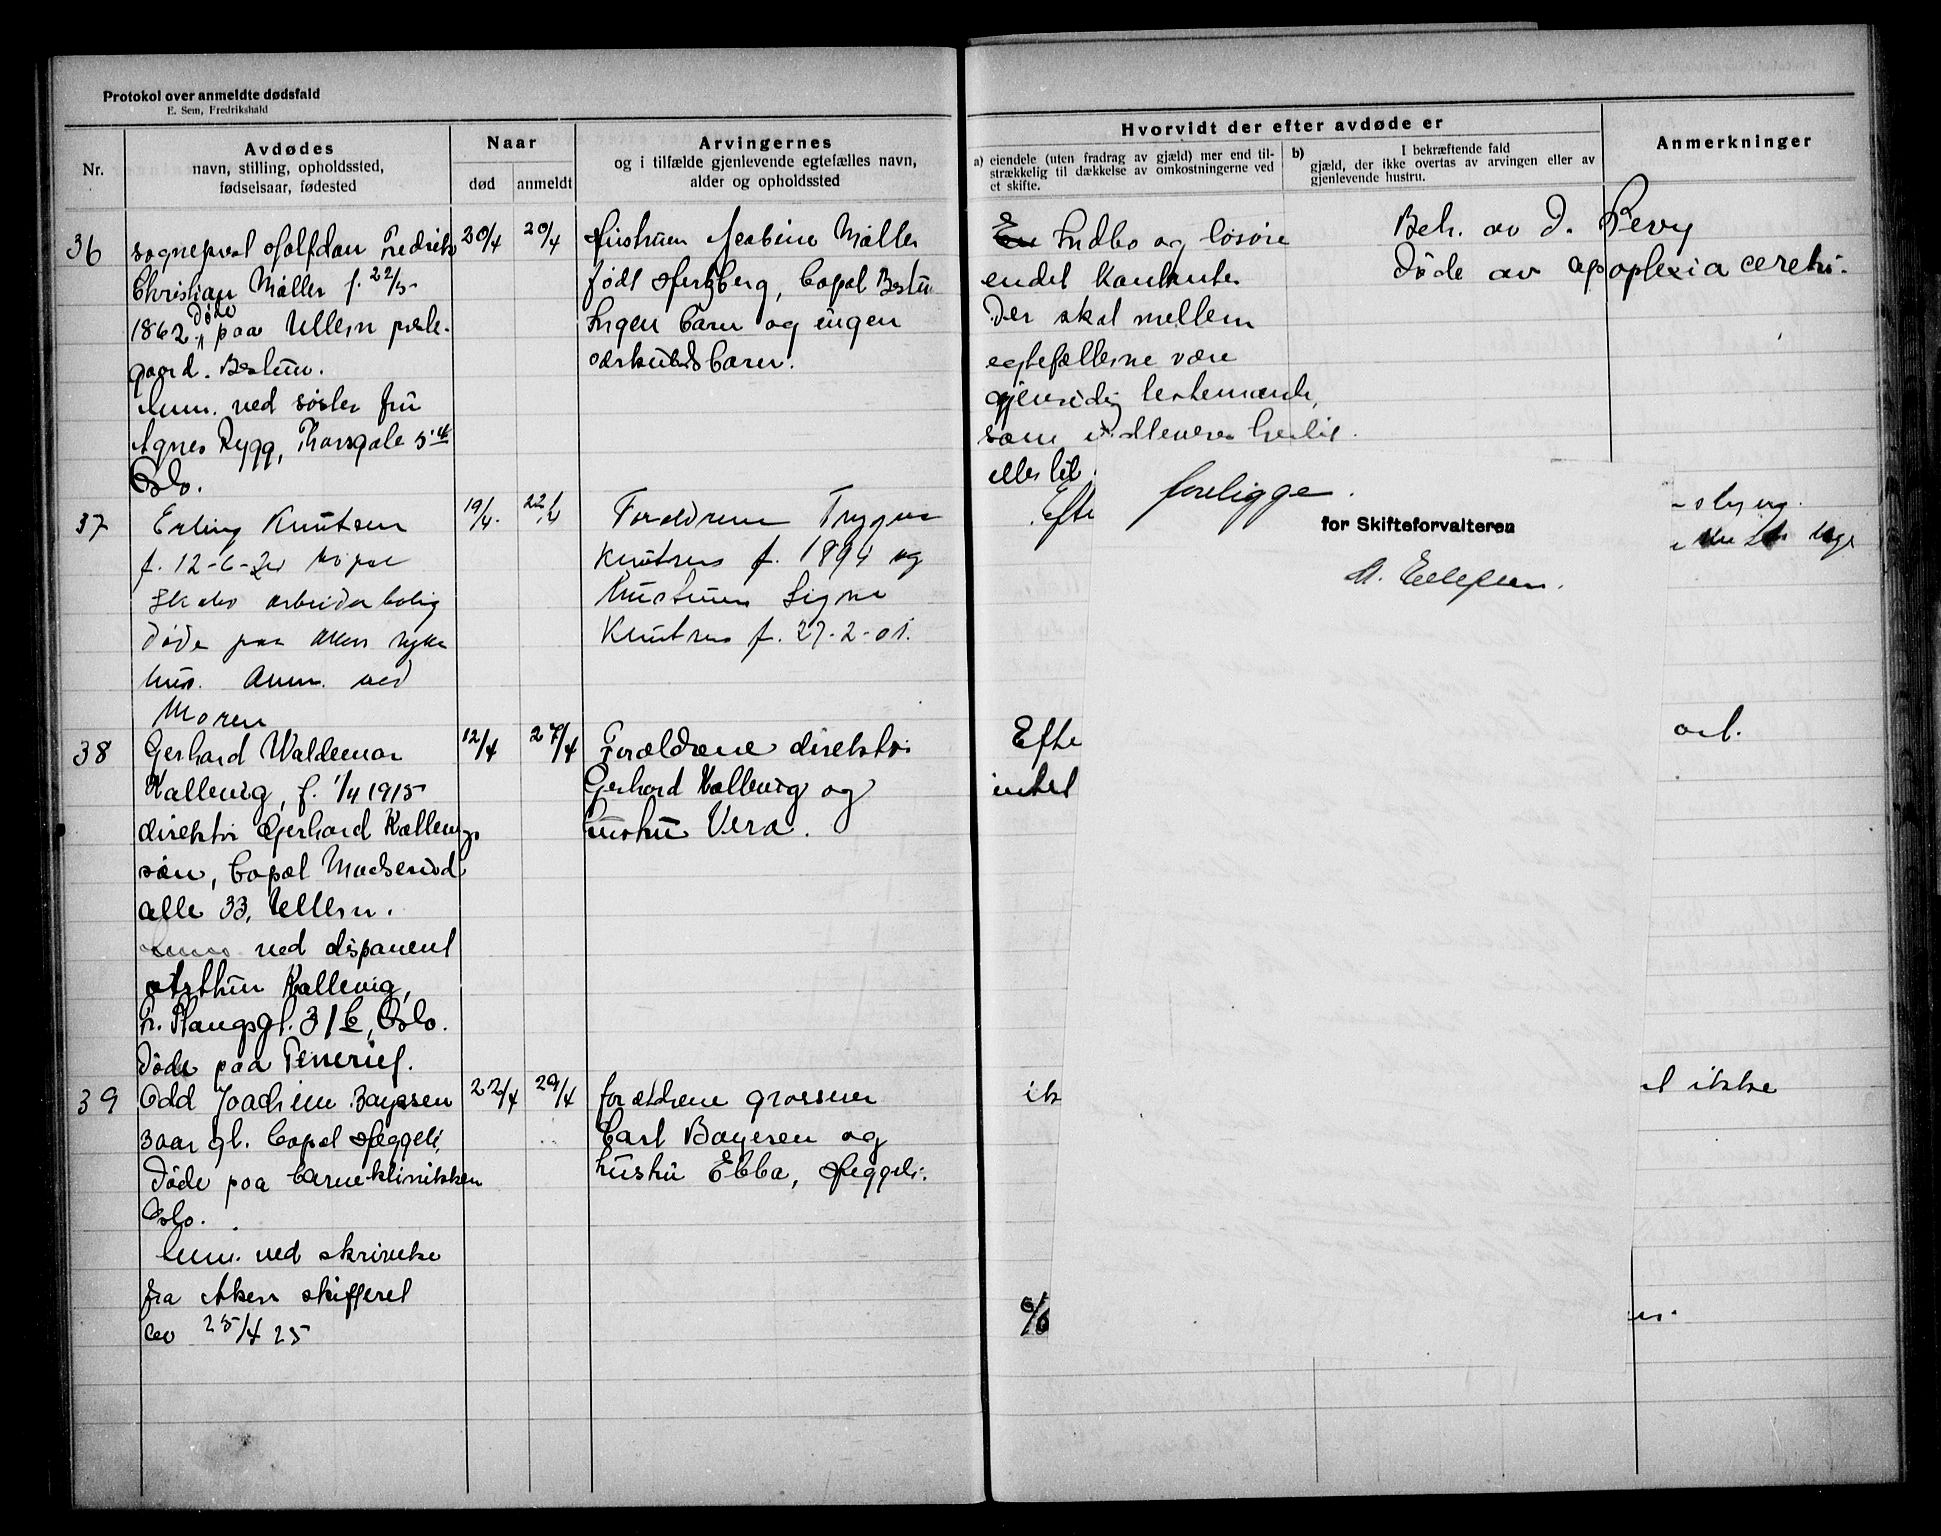 Protokol over anmeldte dødsfald
E. Sem, Fredrikshald
Nr.
Avdødes
navn, stilling, opholdssted,
fødselsaar, fødested
Naar
død
anmeldt
Arvingernes
og i tilfælde gjenlevende egtefælles navn,
alder og opholdssted
Hvorvidt der efter avdøde er
a) eiendele (uten fradrag av gjæld) mer end til-
strækkelig til dækkelse av omkostningerne ved
et skifte.
b) I bekræftende fald
gjæld, der ikke overtas av arvingen eller av
gjenlevende hustru.
Anmerkninger
36
sogneprest Halfdan Fredrik
Christian Møller f. 22/5
1862. døde paa Ullern preste-
gaard. Bestun.
Anm. ved søster fru
Agnes Rygg, Thorsgate 5
Oslo.
20/4
20/4
Hustruen Møller
født Hertzberg, bopæl Bestun
Ingen barn og ingen
særkuldsbarn.
Indbo og løsøre
endel kontanter
Der skal mellem
egtefællerne være
gjensidig testamente,
som
eller lit
Beh. av D. Pevy
Døde av apoplexia cerebri.
37
Erling Knutsen
f. 12-6-
arbeiderbolig
døde paa Akers syke
hus. Anm. ved
Moren
19/4.
22/4
Foreldrene Trygve
Knutsen f. 1894 og
hustruen Signe
Knutsen f. 27-2-01.
Efte
foreligge.
for Skifteforvalteren
38
Gerhard Waldemar
Kallevig, f. 1/4 1915
direktør Gerhard Kallevigs
søn, bopæl Madserud
alle 33, Ullern.
Anm. ved disponent
Arthur Kallevig,
Fr. Stangsgt. 31 b, Oslo.
Døde paa Tenerief.
12/4
27/4
Forældrene direktør
Gerhard Kallevig og
hustru Vera.
Efte
intet
39
Odd Joachim Bayesen
3 aar gl. bopæl Heggeli,
Døde paa barneklinikken
Oslo.
Anm. ved skrivelse
fra Aker skifteret
av 25/4 25
22/4
29/4
forældrene grosserer
Carl Bayesen og
hustru Ebba, Heggeli.
ik
t ikke